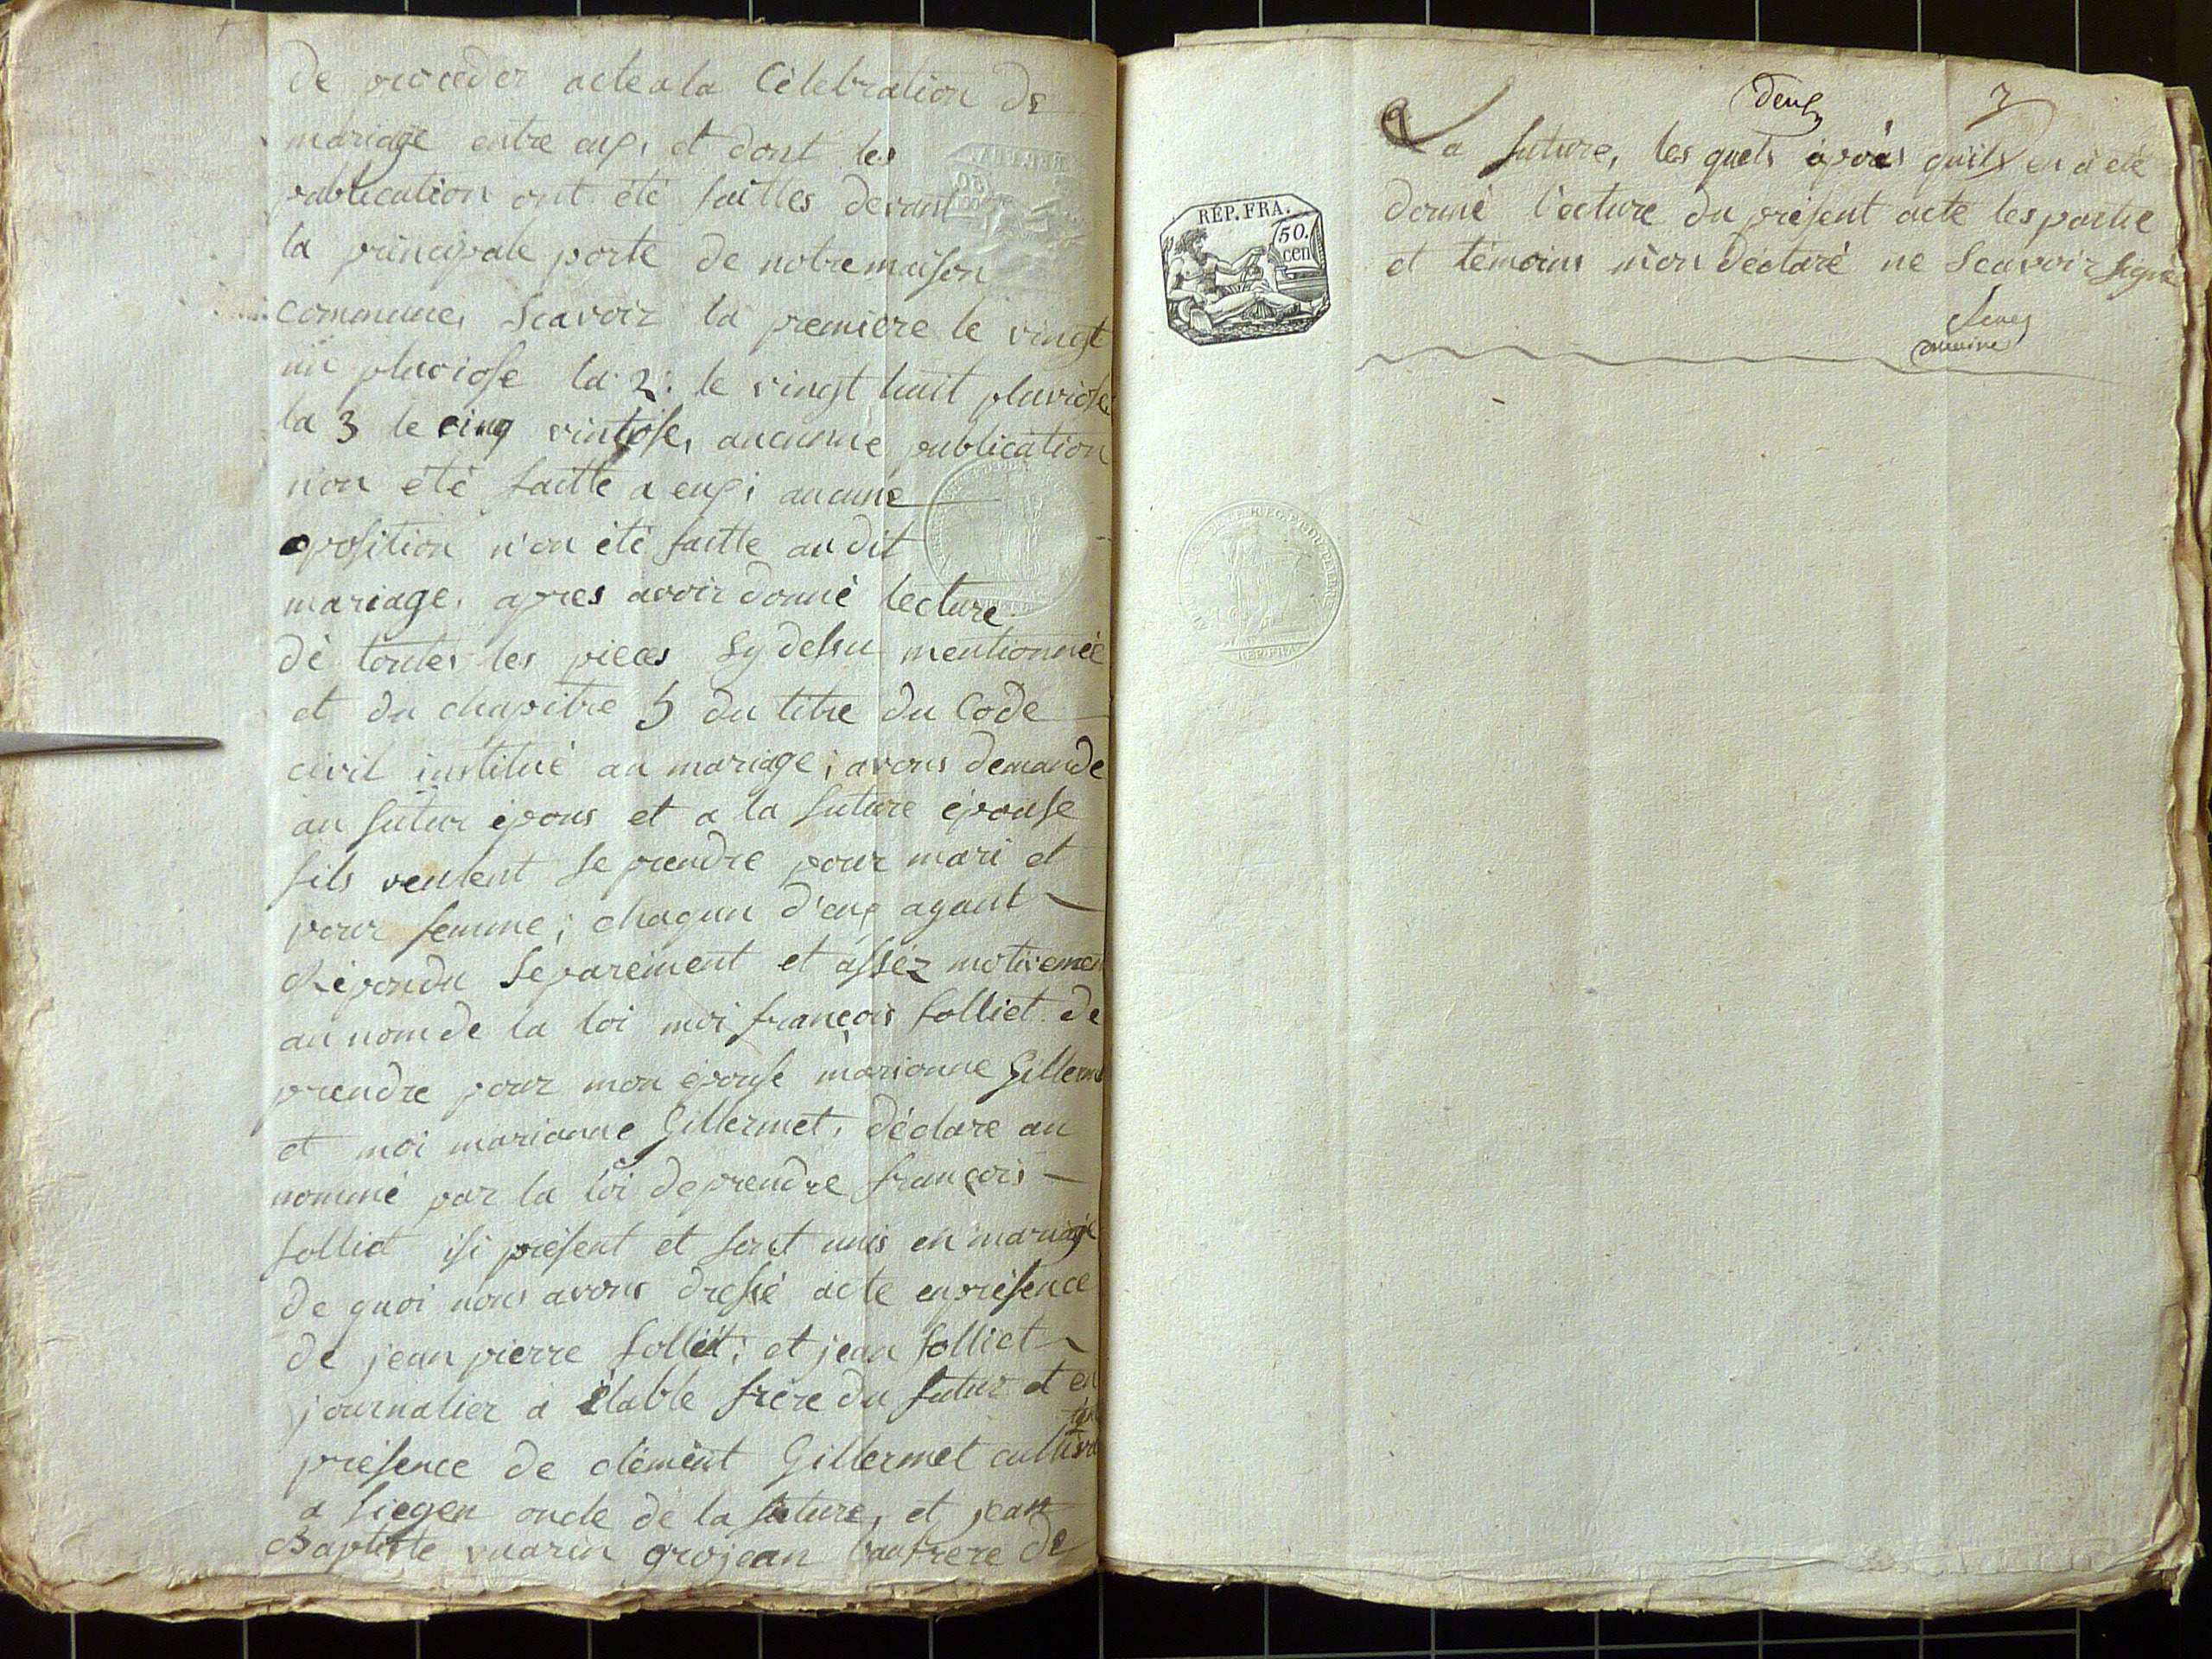 de proceder acte a la Célébration de
mariage entre eux, et dont les
publication ont été faittes devant
la principale porte de notre maison
commune, Scavoir la premiere le vingt
un pluviose la 2: le vingt huit pluviose
la 3 le cinq vintose, aucunne publication
n'on été faitte a eux; aucune
oposition n'on été faitte au dit
mariage, apres avoir donné lecture
dè toutes les pieces Sy dessu mentionnée
et du chapitre 5 du titre du Code
civil institué au mariage; avons demande
au futur épous et a la future épouse
sils veulent se prendre pour mari et
pour femme; chaqun d'eux ayant
Répondu Séparément et assez motivemen
au nom de la loi moi françois folliet de
prendre pour mon épouse marianne Gillerm
et moi marianne Gillermet, déclare au
nommé par la loi de prendre françois
folliet isi présent et sont unis en mariage
de quoi nous avons dressé acte en présence
de jean pierre folliet; et jean folliet
journalier a Etable frère du futur et en
présence de clément Gillermet cultiva
a Siegen oncle de la future, et jean
Baptiste vuarin grojean baufrere de
deux
3
La future, les quels après quils en a été
donné l'ecture du présent acte les partie
et témoins m'on déclaré ne Scavoir signé
maire
RÉP. FRA.
50.
cen